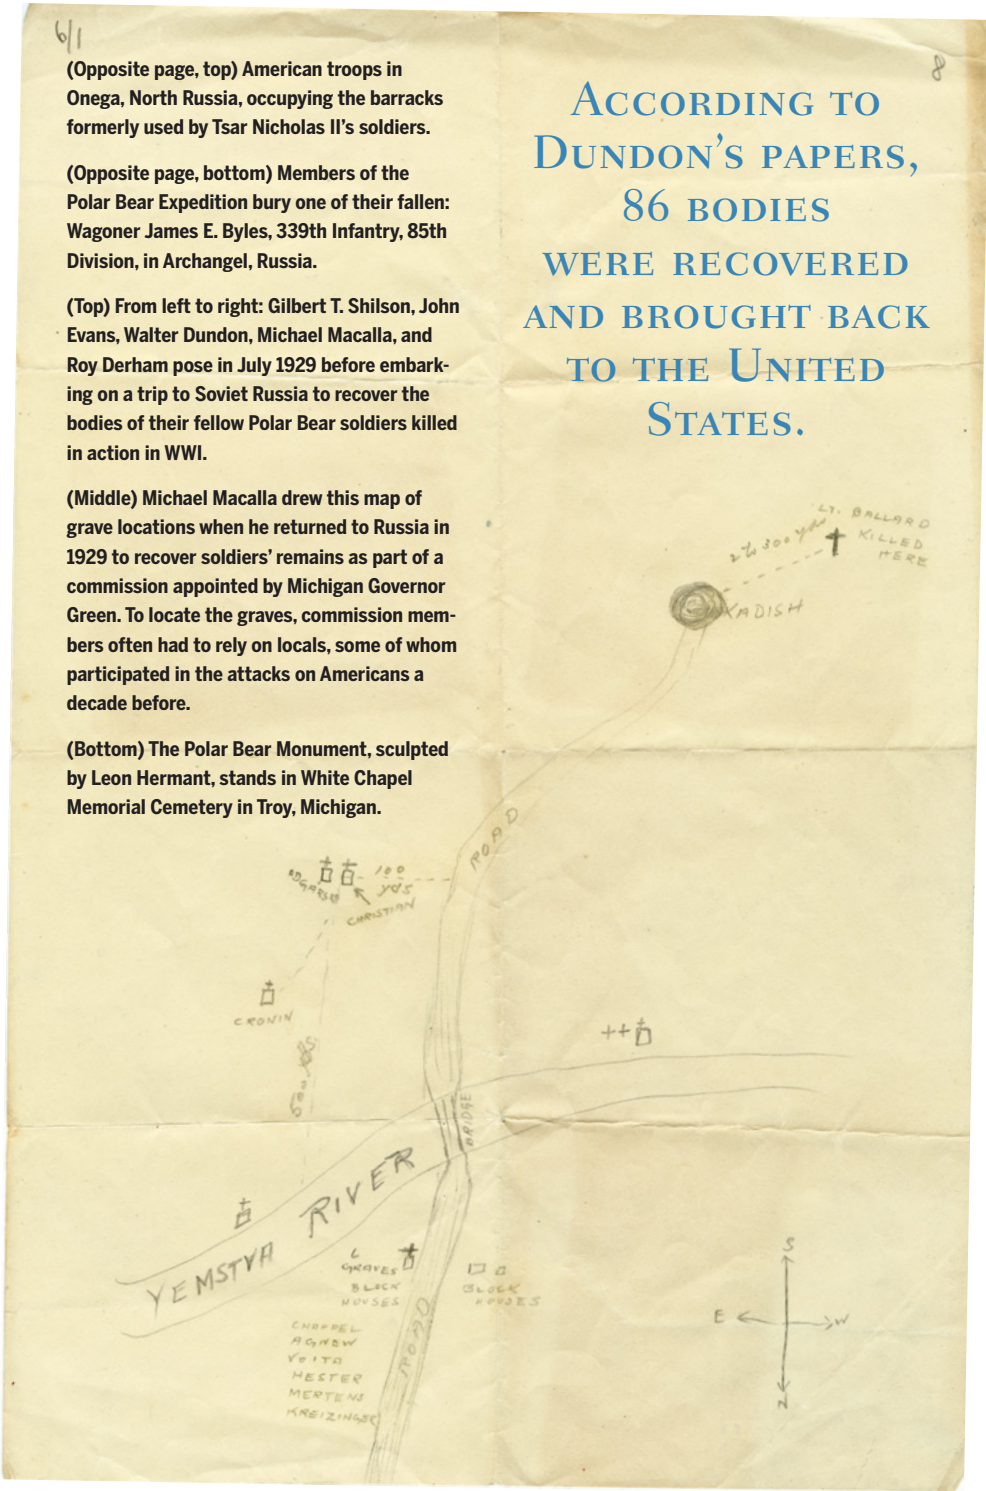 6/1
8
(Opposite page, top) American troops in
Onega, North Russia, occupying the barracks
formerly used by Tsar Nicholas II's soldiers.
(Opposite page, bottom) Members of the
Polar Bear Expedition bury one of their fallen:
Wagoner James E. Byles, 339th Infantry, 85th
Division, in Archangel, Russia.
(Top) From left to right: Gilbert T. Shilson, John
Evans, Walter Dundon, Michael Macalla, and
Roy Derham pose in July 1929 before embark-
ing on a trip to Soviet Russia to recover the
bodies of their fellow Polar Bear soldiers killed
in action in WWI.
(Middle) Michael Macalla drew this map of
grave locations when he returned to Russia in
1929 to recover soldiers' remains as part of a
commission appointed by Michigan Governor
Green. To locate the graves, commission mem-
bers often had to rely on locals, some of whom
participated in the attacks on Americans a
decade before.
(Bottom) The Polar Bear Monument, sculpted
by Leon Hermant, stands in White Chapel
Memorial Cemetery in Troy, Michigan.
According to
Dundon's papers,
86 bodies
were recovered
and brought back
to the United
States.
LT. BALLARD
KILLED
HERE
300 yds
KADISH
ROAD
100
yds
CHRISTIAN
CRONIN
BRIDGE
YEMSTVA RIVER
GRAVES
BLOCK
HOUSES
BLOCK
HOUSES
CHAPPEL
AGNEW
VOITA
HESTER
MERTENS
KREIZINGER
ROAD
S
E
W
N